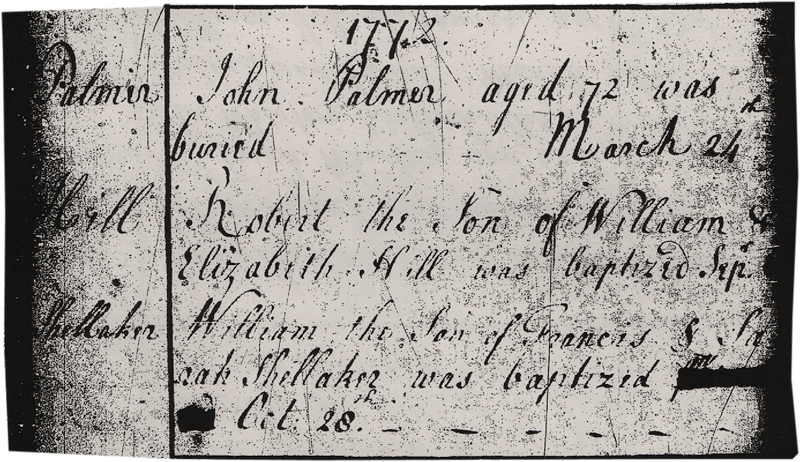 1772.
Palmer John Palmer aged 72 was
buried March 24th
Hill Robert the Son of William &
Elizabeth Hill was baptized Sepr.
Shellaker William the Son of Francis & Sa
rah Shellaker was baptized
Oct. 28th. – – – – – –